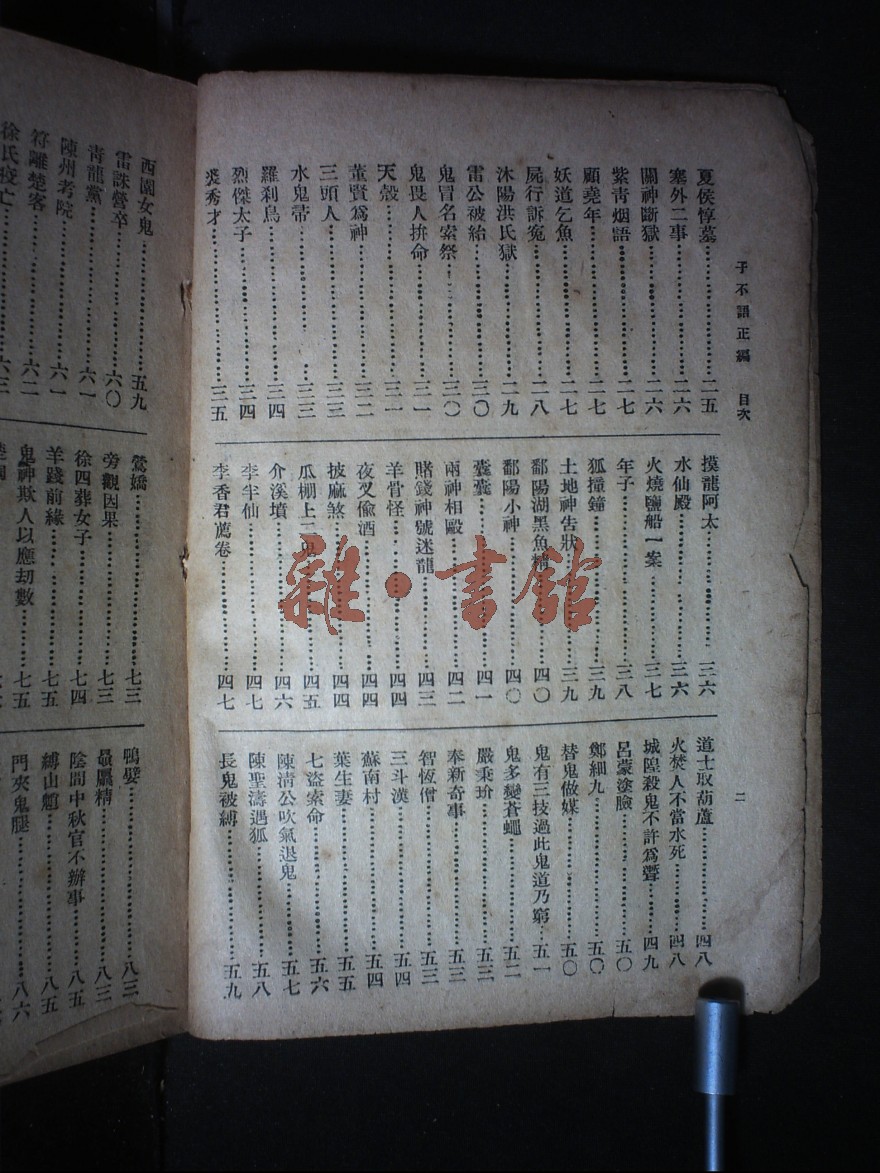 子不語正編 目次 二
夏侯惇墓 二五
塞外二事 二六
關神斷獄 二六
紫靑烟語 二七
顧堯年 二七
妖道乞魚 二七
屍行訴寃 二八
沐陽洪氏獄 二九
雷公被紿 三〇
鬼冒名索祭 三〇
鬼畏人拚命 三一
天殼 三一
董賢爲神 三二
三頭人 三三
水鬼帚 三三
羅刹鳥 三四
烈傑太子 三四
裘秀才 三五
摸龍阿太 三六
水仙殿 三六
火燒鹽船一案 三七
年子 三八
狐撞鐘 三九
土地神吿狀 三九
鄱陽湖黑魚精 四〇
鄱陽小神 四〇
囊囊 四一
兩神相毆 四二
賭錢神號迷龍 四三
羊骨怪 四四
夜叉偸酒 四四
披麻煞 四四
瓜棚上二鬼 四五
介溪墳 四六
李半仙 四七
李香君薦卷 四七
道士取葫蘆 四八
火焚人不當水死 四八
城隍殺鬼不許爲聻 四九
呂蒙塗臉 五〇
鄭細九 五〇
替鬼做媒 五〇
鬼有三技過此鬼道乃窮 五一
鬼多變蒼蠅 五二
嚴秉玠 五三
奉新奇事 五三
智恆僧 五三
三斗漢 五四
蘇南村 五四
葉生妻 五五
七盜索命 五六
陳淸公吹氣退鬼 五七
陳聖濤遇狐 五八
長鬼被縛 五九
西園女鬼 五九
雷誅營卒 六〇
靑龍黨 六一
陳州考院 六一
符離楚客 六二
徐氏疫亡 六三
鶯嬌 七三
旁觀因果 七三
徐四葬女子 七四
羊踐前緣 七五
鬼神欺人以應刧數 七五
鴨嬖 八三
贔屭精 八三
陰間中秋官不辦事 八五
縛山魈 八五
門夾鬼腿 八六
雜·書館